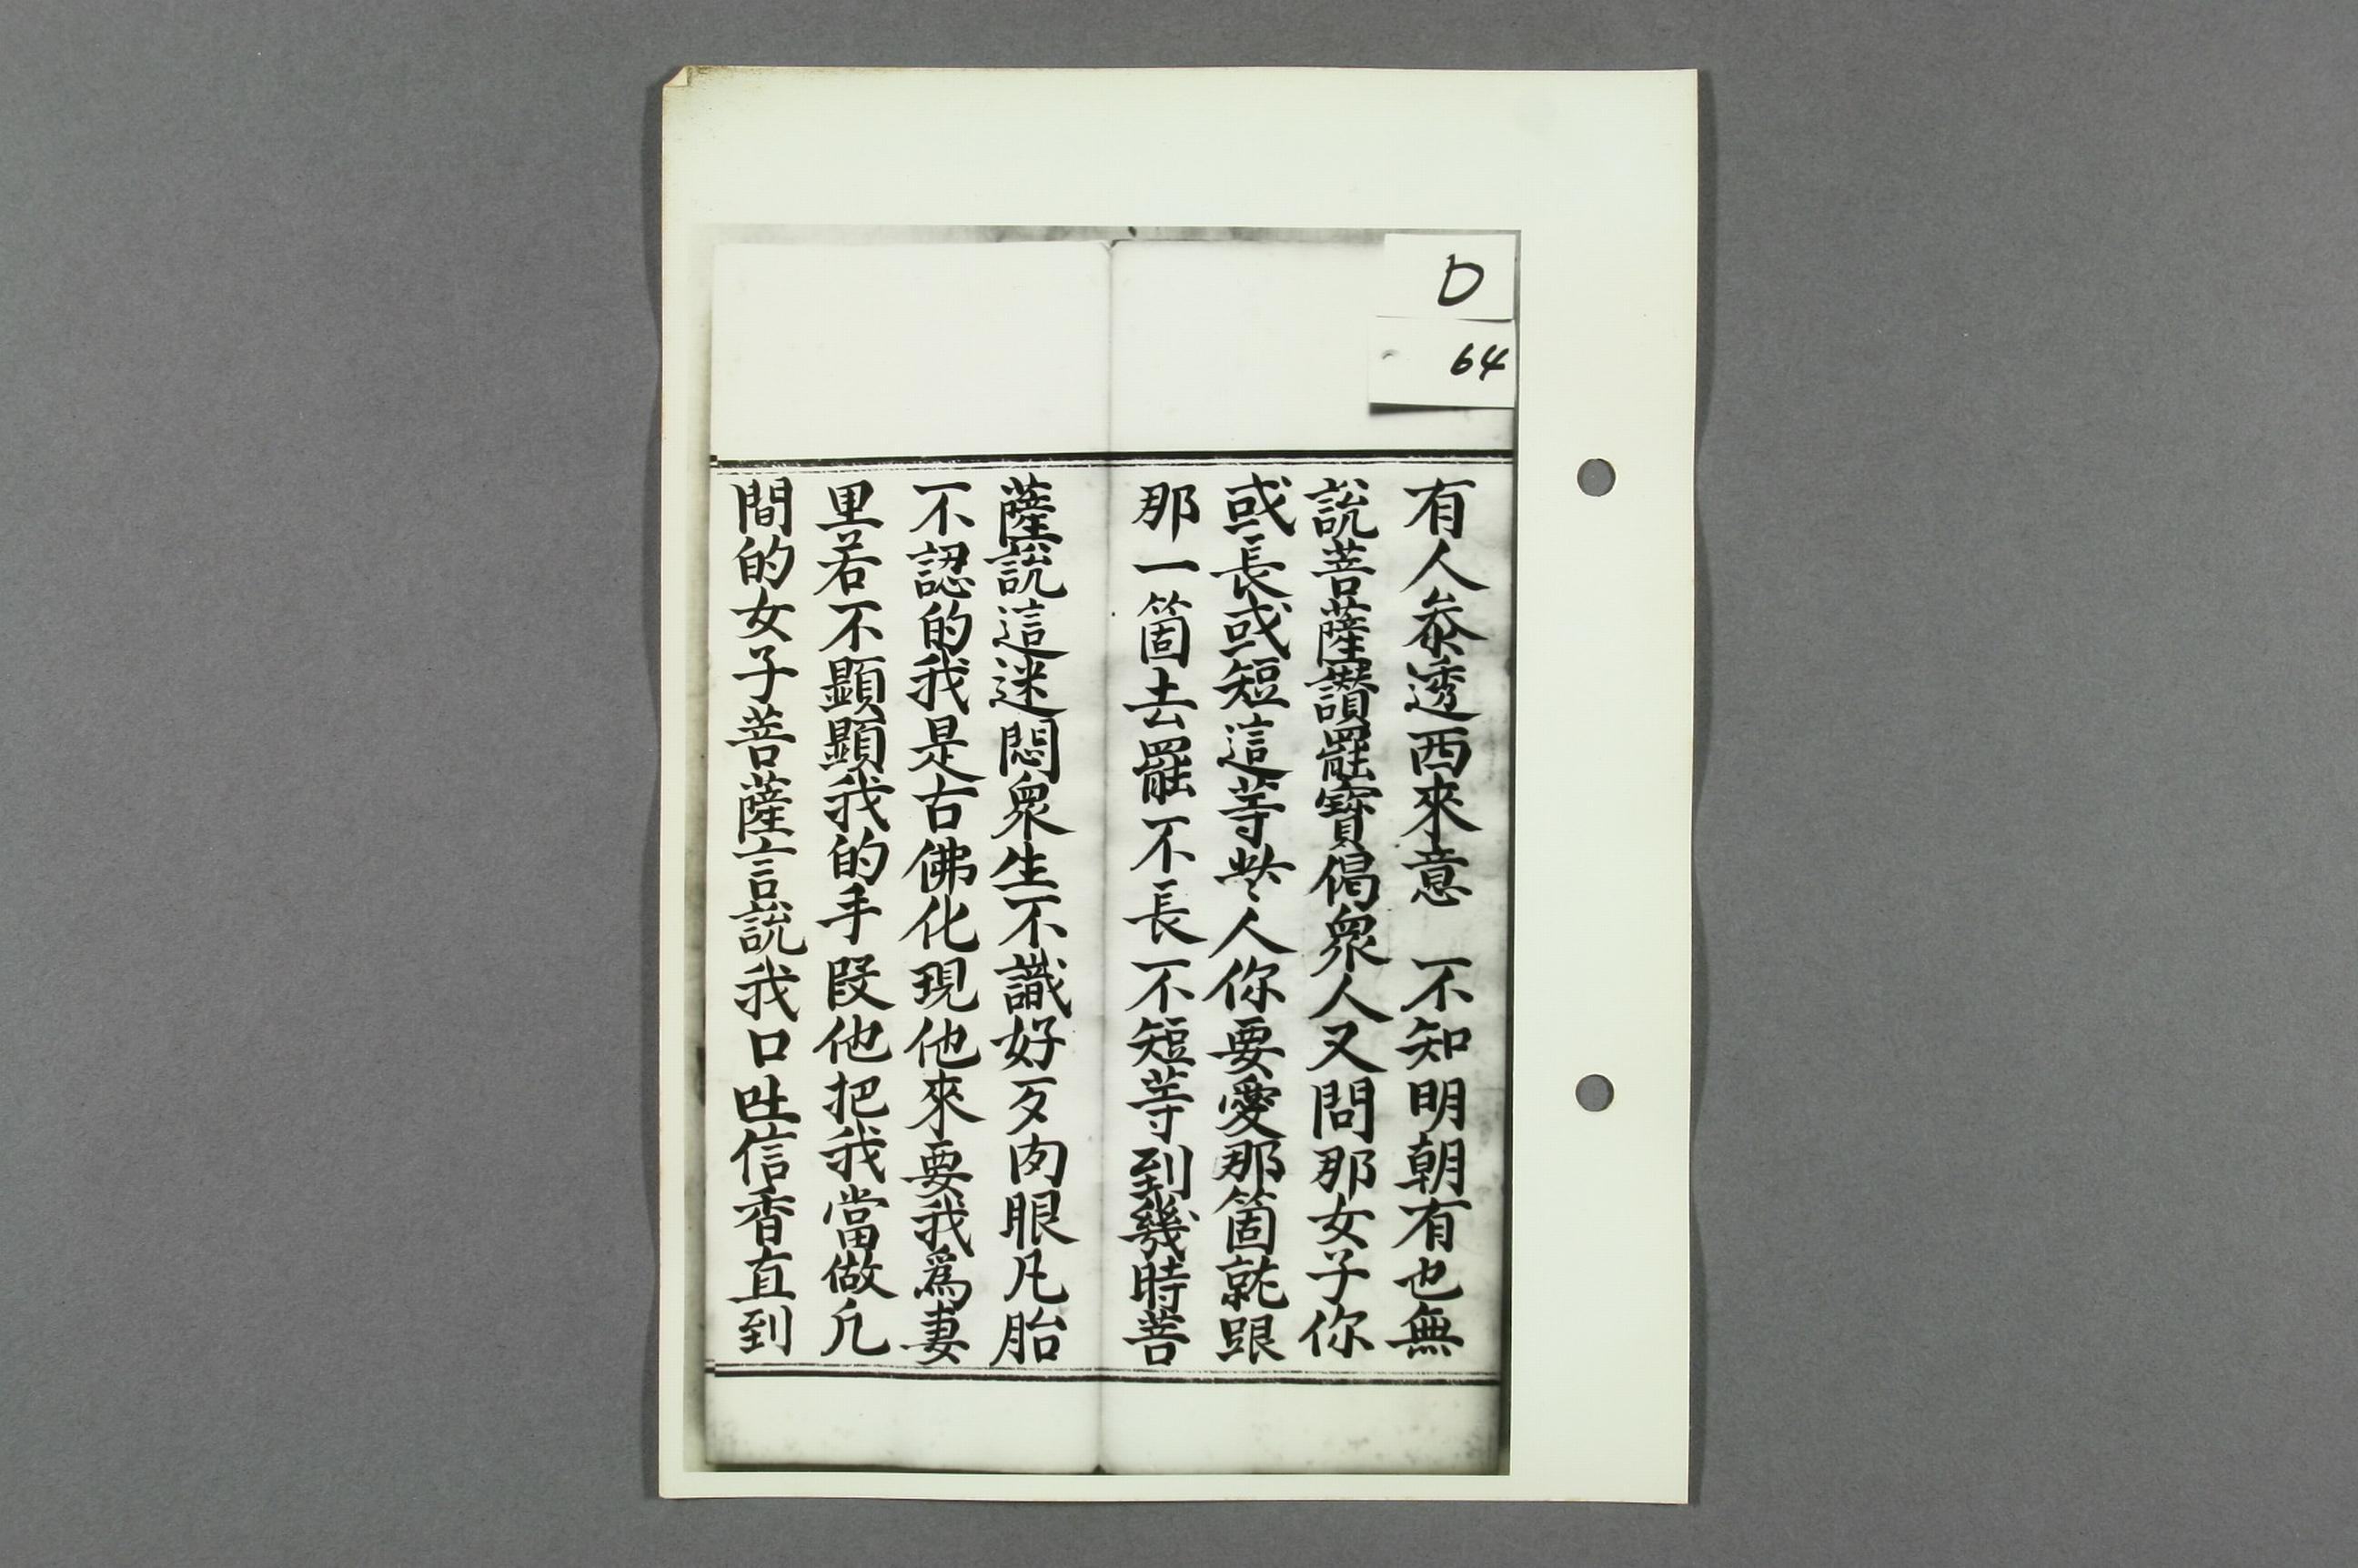 D
64
有人叅透西來意　不知明朝有也無
說菩薩讚罷寶偈衆人又問那女子你
或長或短這等㱏人你要愛那箇就跟
那一箇去罷不長不短等到幾時菩
薩說這迷悶衆生不識好歹肉眼凡胎
不認的我是古佛化現他來要我爲妻
里若不顯顯我的手段他把我當做凡
間的女子菩薩言說我口吐信香直到